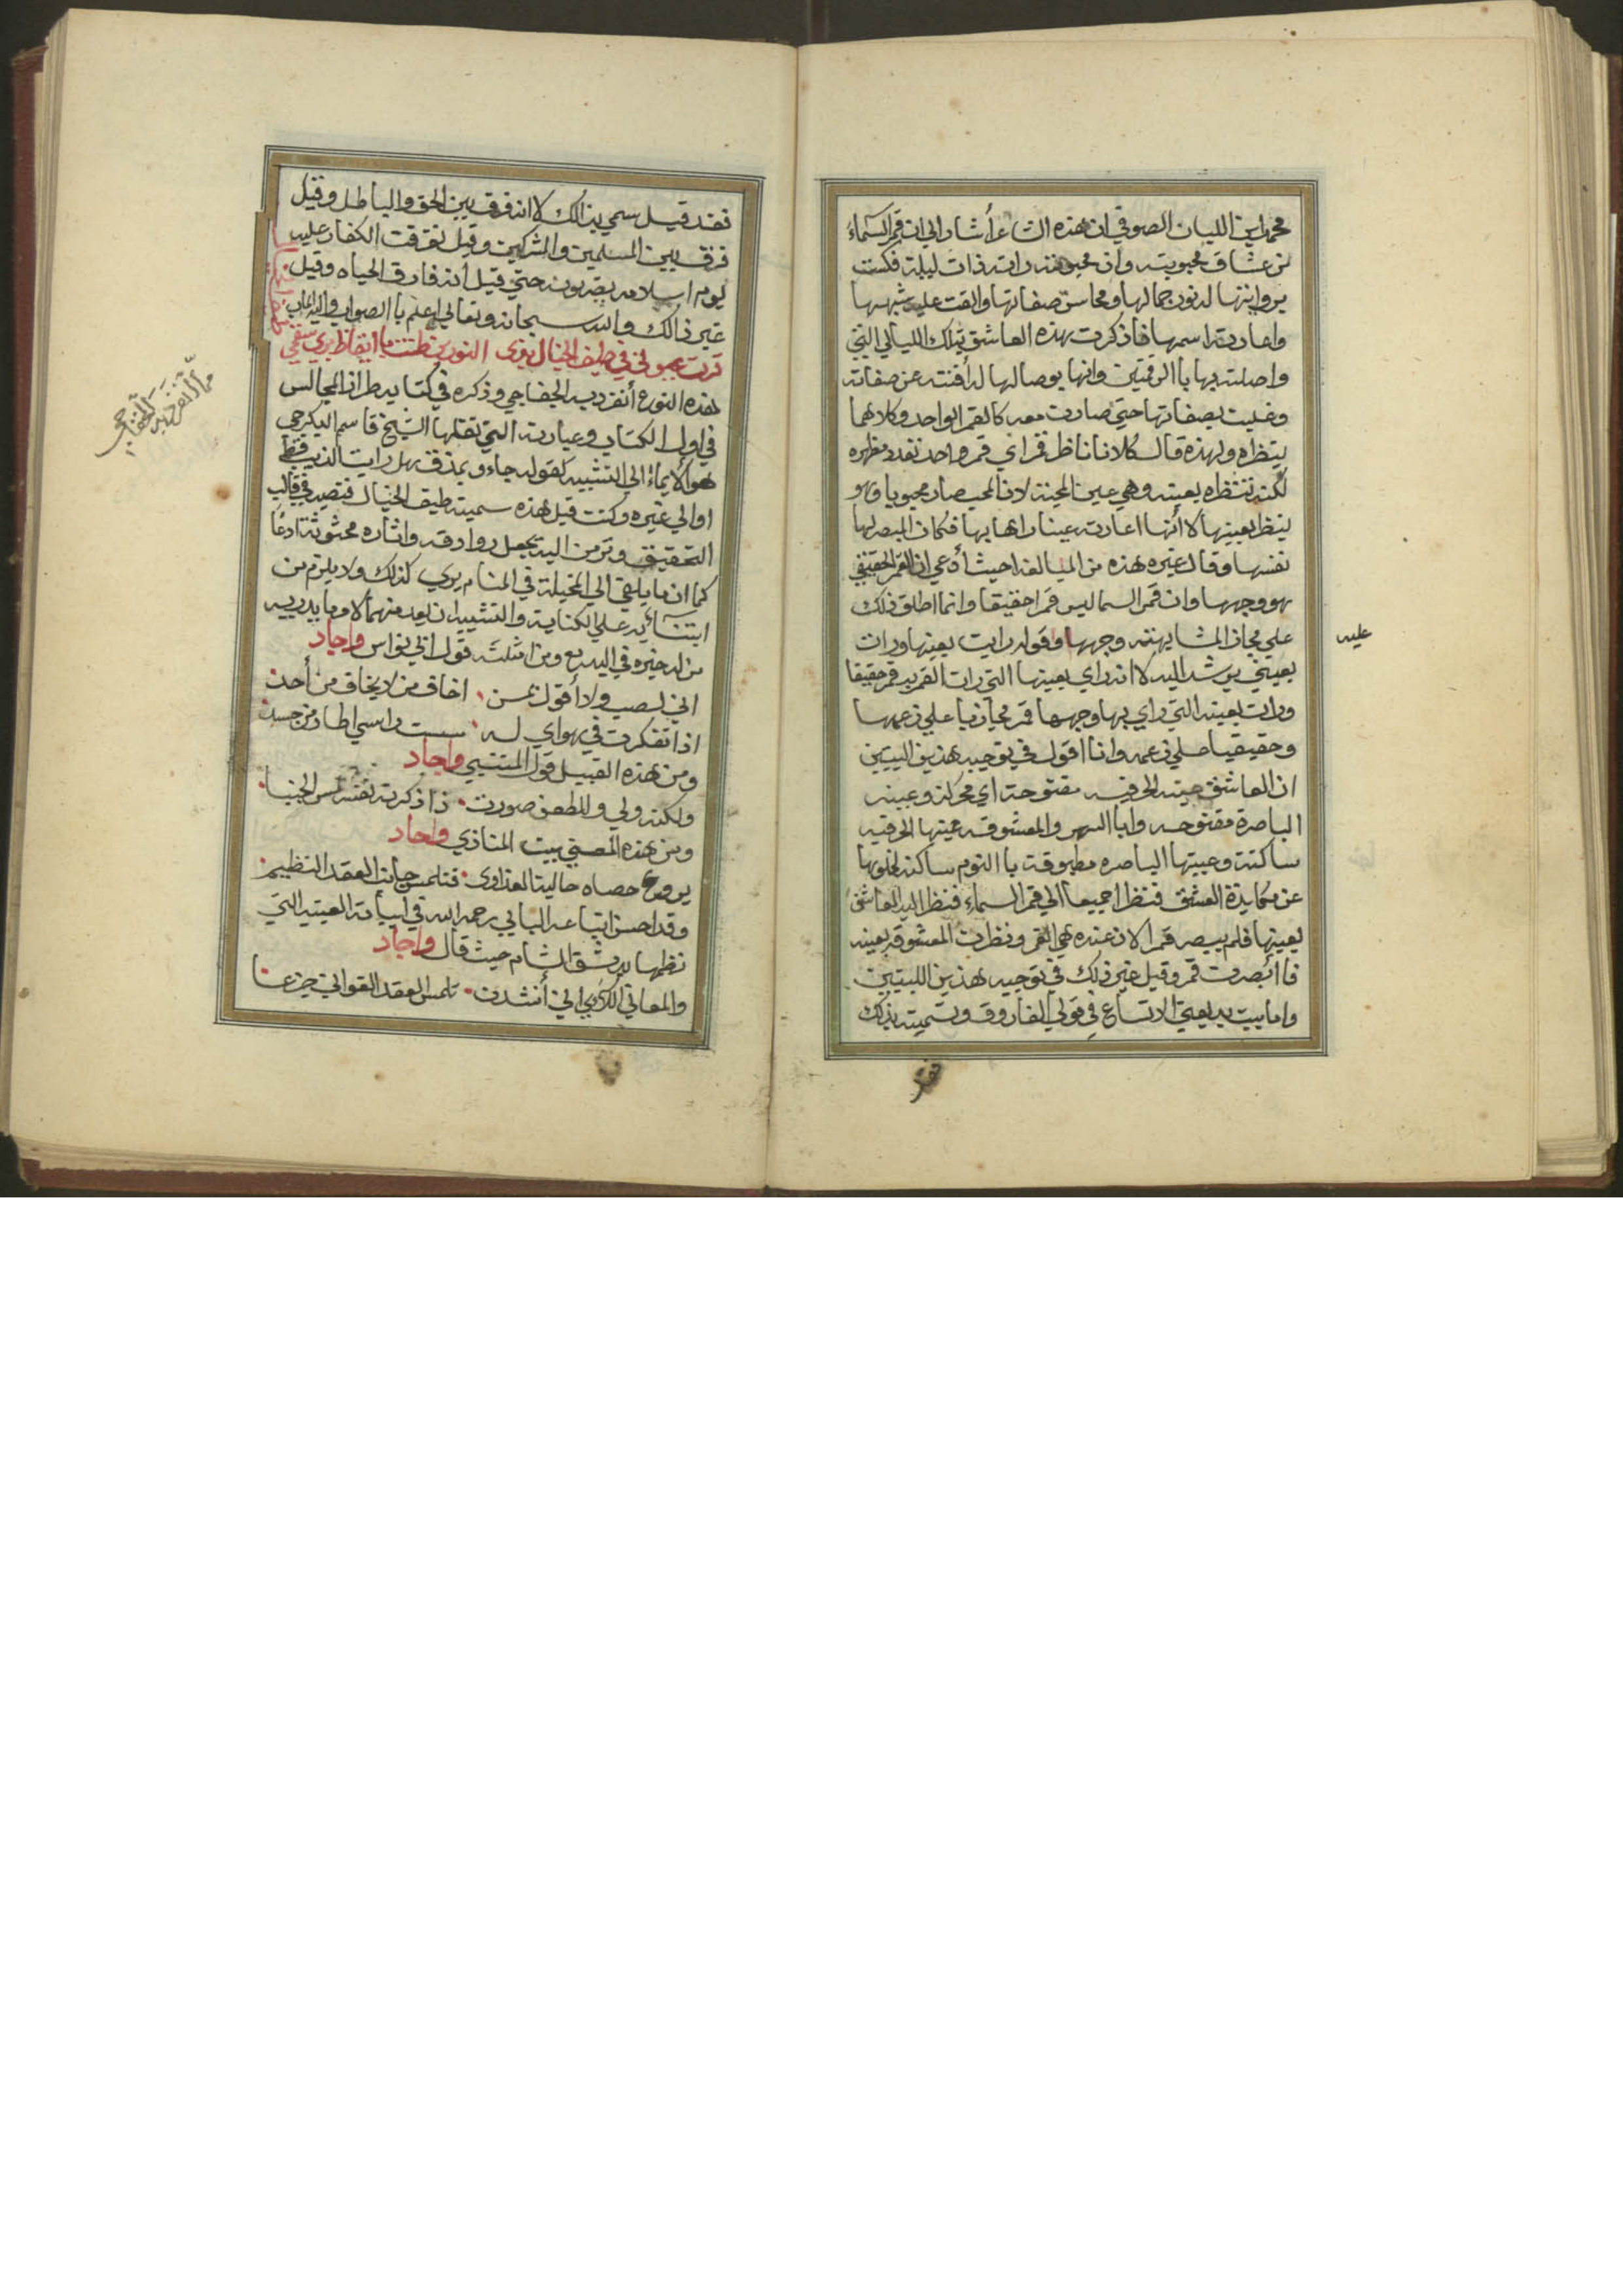 محمد ابن اللبان الصوفي ان هذه الشاعر أشار الي ان قمر السماء
من عشاق محبوبته وان محبوبته راته ذات ليلة فكست
برؤايتها له نور جمالها ومحاسن صفاتها والقت عليه شبهها
واعارته اسمها فاذكرت بهذه العاشق تلك الليالي التي
واصلته بها با الرقمتين وانها بوصالها له افنته عن صفاته
وغلبت بصفاتها حتي صارت معه كالقمر الواحد وكلاهما
ينظراه ولهذه قال كلانا ناظر قمرا اي قمر واحد تعدد مظهره
لكنه تنظراه بعينه وهي عين المحبة لان المحب صار محبوبا وهو
ينظر بعينها لا أنها اعارته عينا راها بها فكان المبصر لها
نفسها وقال غيره هذه من المبالغة حيث أدعي ان القمر الحقيقي
هو وجهها وان قمر السما ليس قمرا حقيقا وانما اطلق ذلك
علي مجاز المشابهته وجهها وقوله رايت بعينها ورات
عليه
بعيني يرشد اليه لا انه راي بعينها التي رات القمر به قمر حقيقا
ورات بعينه التي راي بها وجهها قمر مجازيا علي زعمها
وحقيقيا علي زعمه وانا اقول في توجيه هذين البيتين
ان العاشق عينه الحرفيه مفتوحة اي محركة وعينه
الباصرة مفتوحه وابا السهر والمعشوقه عينها الحرفيه
ساكنة وعينها الباصره مطبوقة با النوم ساكنة لخلوها
عن مكايدة العشق فنظرا جميعا الي قمر السماء فنظر اليه العاشق
بعينها فلم يبصر قمرا لان عنده هي القمر ونظرت المعشوقه بعينه
فا ابصرت قمر وقيل غير ذلك في توجيه هذين البيتين
واما بيت بديعتي الاتساع في قولي الفاروق وتسميته بذلك
فقد قيل سمي بذالك لا انه فرق بين الحق والباطل وقيل
فرق بين المسلمين والمشركين وقيل تفرقت الكفار عليه
يوم اسلامه يضربونه حتي قيل أنه فارق الحياه وقيل
غير ذالك والله سبحانه وتعالي اعلم با الصواب واليه الماب
قرت عيوني في طيف الخيال نري النور ظننت با ايقاظ يري سقمي
هذه النوع أنفرد به الخفاجي وذكره في كتابه طراز المجالس
مما أنفرد به الخفاجي
في اول الكتاب وعبارته التي نقلها الشيخ قاسم البكرجي
هو الايماء الي التشبيه كقوله جاءو بمذق هل رايت الذيب قط
او الي غيره وكنت قبل هذه سميته طيف الخيال فتصير في قالب
التحقيق وترمز اليه بجعل روادفه واثاره محثوثة ادعا
كما ان ما يلقي الي المخيلة في المنام يري كذلك ولا يلزم من
ابتنائه علي الكناية والتشبيه ان يعد منهما لا وما يدريه
من له خبره في البديع ومن امثلته قول ابي نواس واجاد
اني لصب ولا أقول بمن اخاف من لا يخاف من أحد
اذا تفكرت في هواي له مسست راسي اطار من جسدي
ومن هذه القبيل قول المتنبي واجاد
ولكنه ولي وللطعن صورت اذا ذكرته نفسه لمس الجنبا
ومن هذه المعني بيت المنازي واجاد
يروع حصاه حاليت العذاري فتلمس جانب العقد النظيم
وقد احسن اتباعه البابي رحمه الله في ابياته العينيه التي
نظمها بدمشق الشام حيث قال واجاد
والمعاني البكر ابي أنشدت تلمس العقد الغواني جزعا